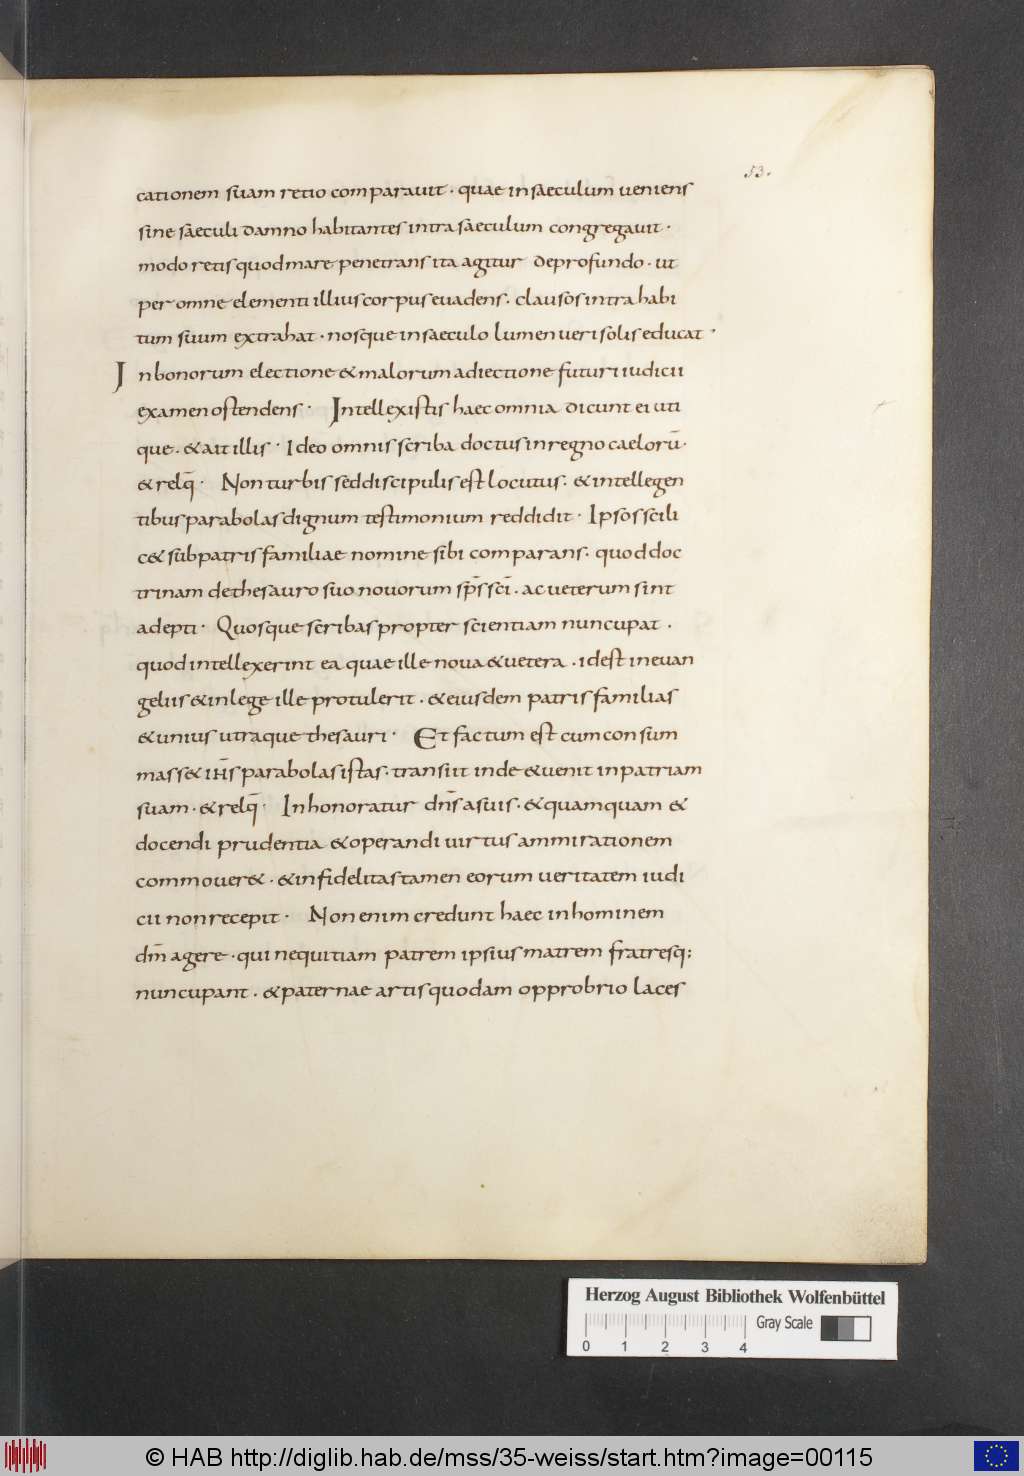 53.
cationem suam retio comparauit · quae in saeculum ueniens
sine saeculi damno habitantes intra saeculum congregauit ·
modo retis quod mare penetrans ita agitur de profundo · ut
per omne elementi illius corpus euadens · clausos intra habi
tum suum extrahat · nosque in saeculo lumen ueri solis educat ·
In bonorum electione & malorum adiectione futuri iudicii
examen ostendens · Intellexistis haec omnia dicunt ei uti
que · & ait illis · Ideo omnis scriba doctus in regno caeloru̅ ·
& relq̅ · Non turbis sed discipulis est locutus · & intellegen
tibus parabolas dignum testimonium reddidit · Ipsos scili
c& sub patris familiae nomine sibi comparans · quod doc
trinam de thesauro suo nouorum sp̅s sc̅i · ac ueterum sint
adepti · Quosque scribas propter scientiam nuncupat ·
quod intellexerint ea quae ille noua & uetera · id est in euan
geliis & in lege ille protulerit · & eiusdem patris familias
& unius utraque thesauri · Et factum est cum consum
mass& ih̅s parabolas istas · transiit inde & uenit in patriam
suam · & relq̅ · Inhonoratur dn̅s a suis · & quamquam &
docendi prudentia & operandi uirtus ammirationem
commouer& · & infidelitas tamen eorum ueritatem iudi
cii non recepit · Non enim credunt haec in hominem
dm̅ agere · qui nequitiam patrem ipsius matrem fratresq;
nuncupant · & paternae artis quodam opprobrio laces
Herzog August Bibliothek Wolfenbüttel
Gray Scale
0 1 2 3 4
© HAB http://diglib.hab.de/mss/35-weiss/start.htm?image=00115